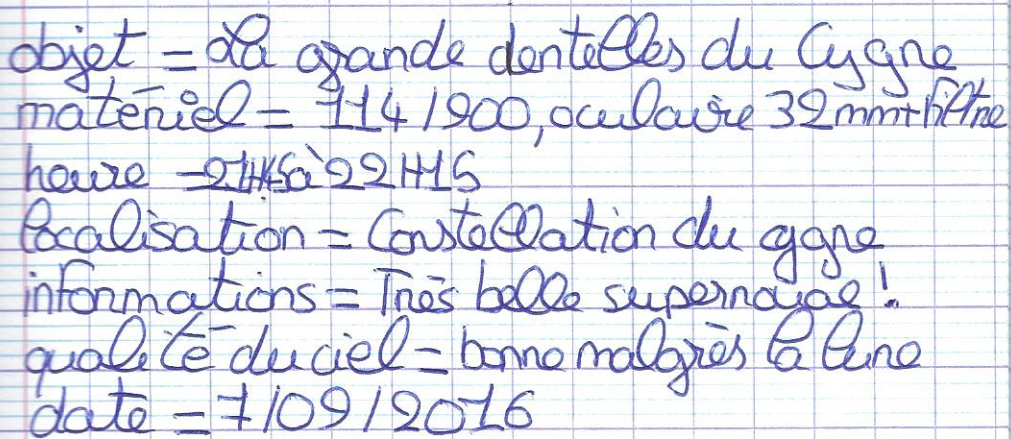 objet = La grande dentelles du Cygne
matériel = 114/900, oculaire 32mm+filtre
heure = 21H45 à 22H15
localisation = Constellation du cygne
informations = Très belle supernovae !
qualité du ciel = bonne malgrès la lune
date = 7/09/2016